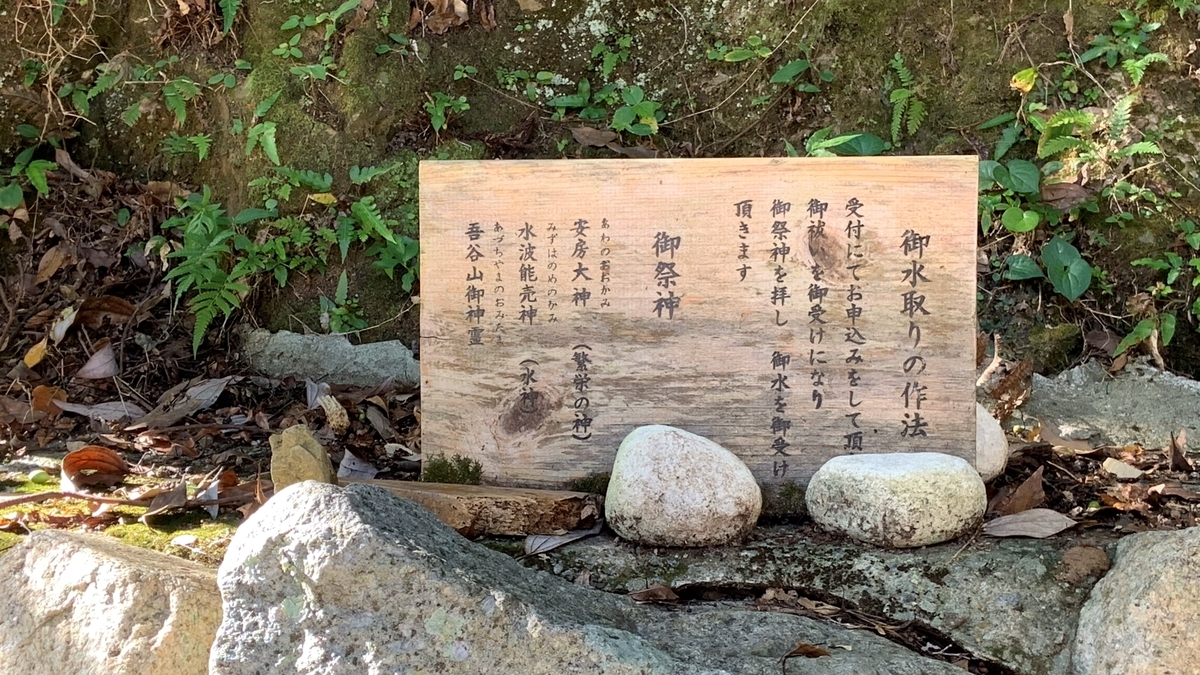 御水取りの作法
受付にてお申込みをして頂
御祓いを御受けになり
御祭神を拝し 御水を御受け
頂きます
御祭神
あわのおおかみ
安房大神 (繁栄の神)
みずはのめのかみ
水波能売神 (水神)
あづちやまのおみたま
吾谷山御神霊